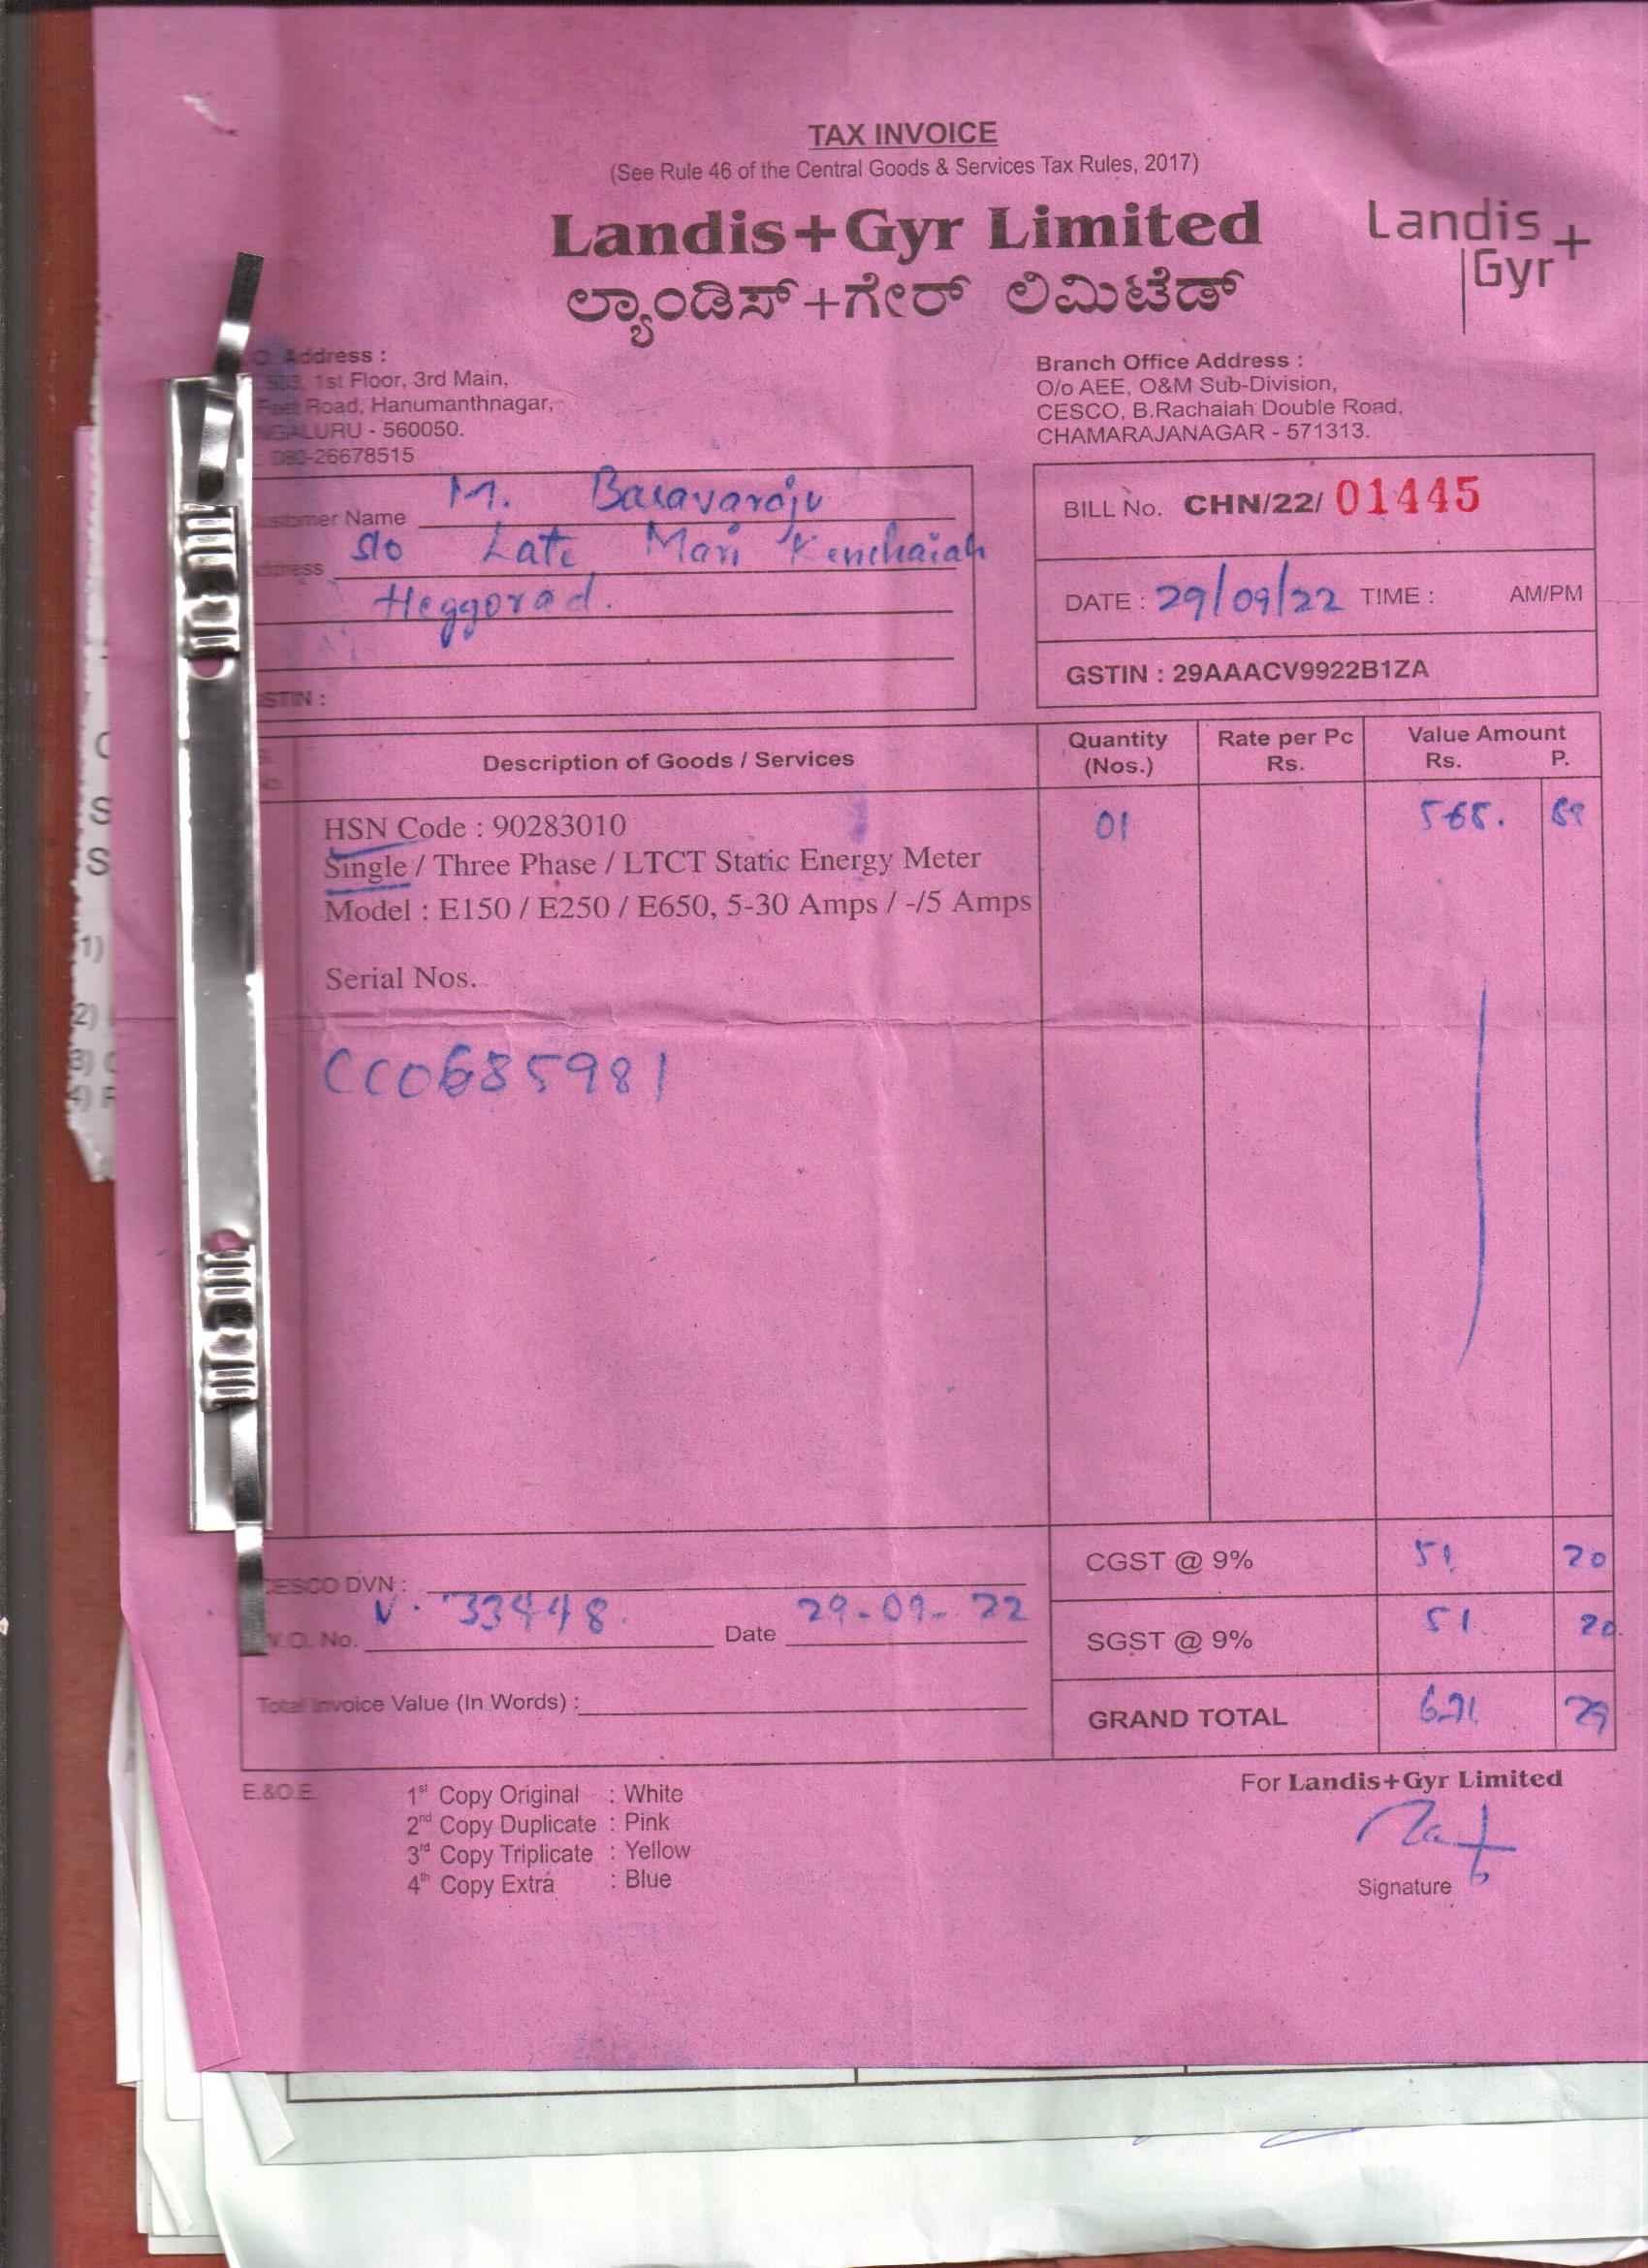 TAX INVOICE
(See Rule 46 of the Central Goods & Services Tax Rules, 2017)
Landis+Gyr Limited
ಲ್ಯಾಂಡಿಸ್+ಗೇರ್ ಲಿಮಿಟೆಡ್
Landis
Gyr+
Address :
1st Floor, 3rd Main,
Road, Hanumanthnagar,
560050.
080-26678515
Branch Office Address :
O/o AEE, O&M Sub-Division,
CESCO, B.Rachaiah Double Road,
CHAMARAJANAGAR - 571313.
Customer Name M. Basavaraju
Address S/o Late Mari Kenchaiah
Heggorad.
GSTIN :
BILL No. CHN/22/ 01445
DATE : 29/09/22 TIME : AM/PM
GSTIN : 29AAACV9922B1ZA
Description of Goods / Services
Quantity (Nos.)
Rate per Pc Rs.
Value Amount Rs. P.
HSN Code : 90283010 01 568. 89
Single / Three Phase / LTCT Static Energy Meter
Model : E150 / E250 / E650, 5-30 Amps / -/5 Amps
Serial Nos.
CC0685981
CESCO DVN :
W.O. No. V. 33448. Date 29-09-22
Total Invoice Value (In Words) :
CGST @ 9% 51. 20
SGST @ 9% 51. 20.
GRAND TOTAL 671. 29
E.&O.E.
1st Copy Original : White
2nd Copy Duplicate : Pink
3rd Copy Triplicate : Yellow
4th Copy Extra : Blue
For Landis+Gyr Limited
Signature